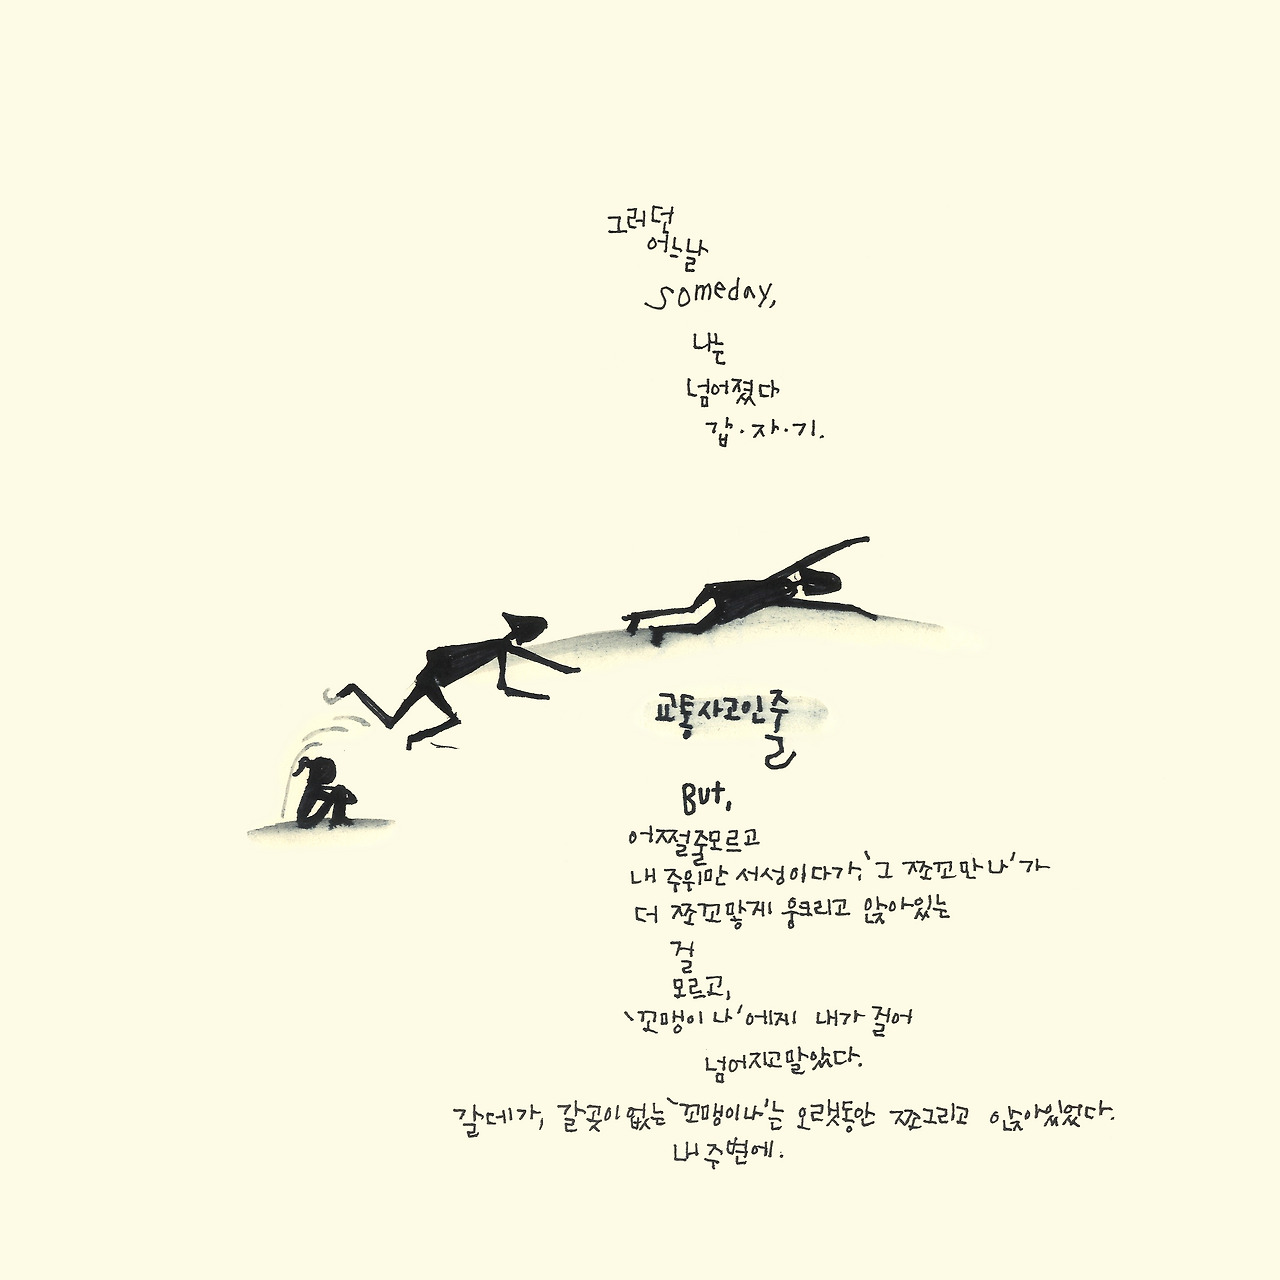 그러던
어느날
someday,
나는
넘어졌다
갑·자·기.
교통사고인줄
But,
어쩔줄모르고
내 주위만 서성이다가, '그 쪼꼬만 나'가
더 쪼꼬맣게 웅크리고 앉아있는
걸
모르고,
'꼬맹이 나'에게 내가 걸어
넘어지고말았다.
갈데가, 갈곳이 없는 '꼬맹이나'는 오랫동안 쪼그리고 앉아있었다.
내 주변에.